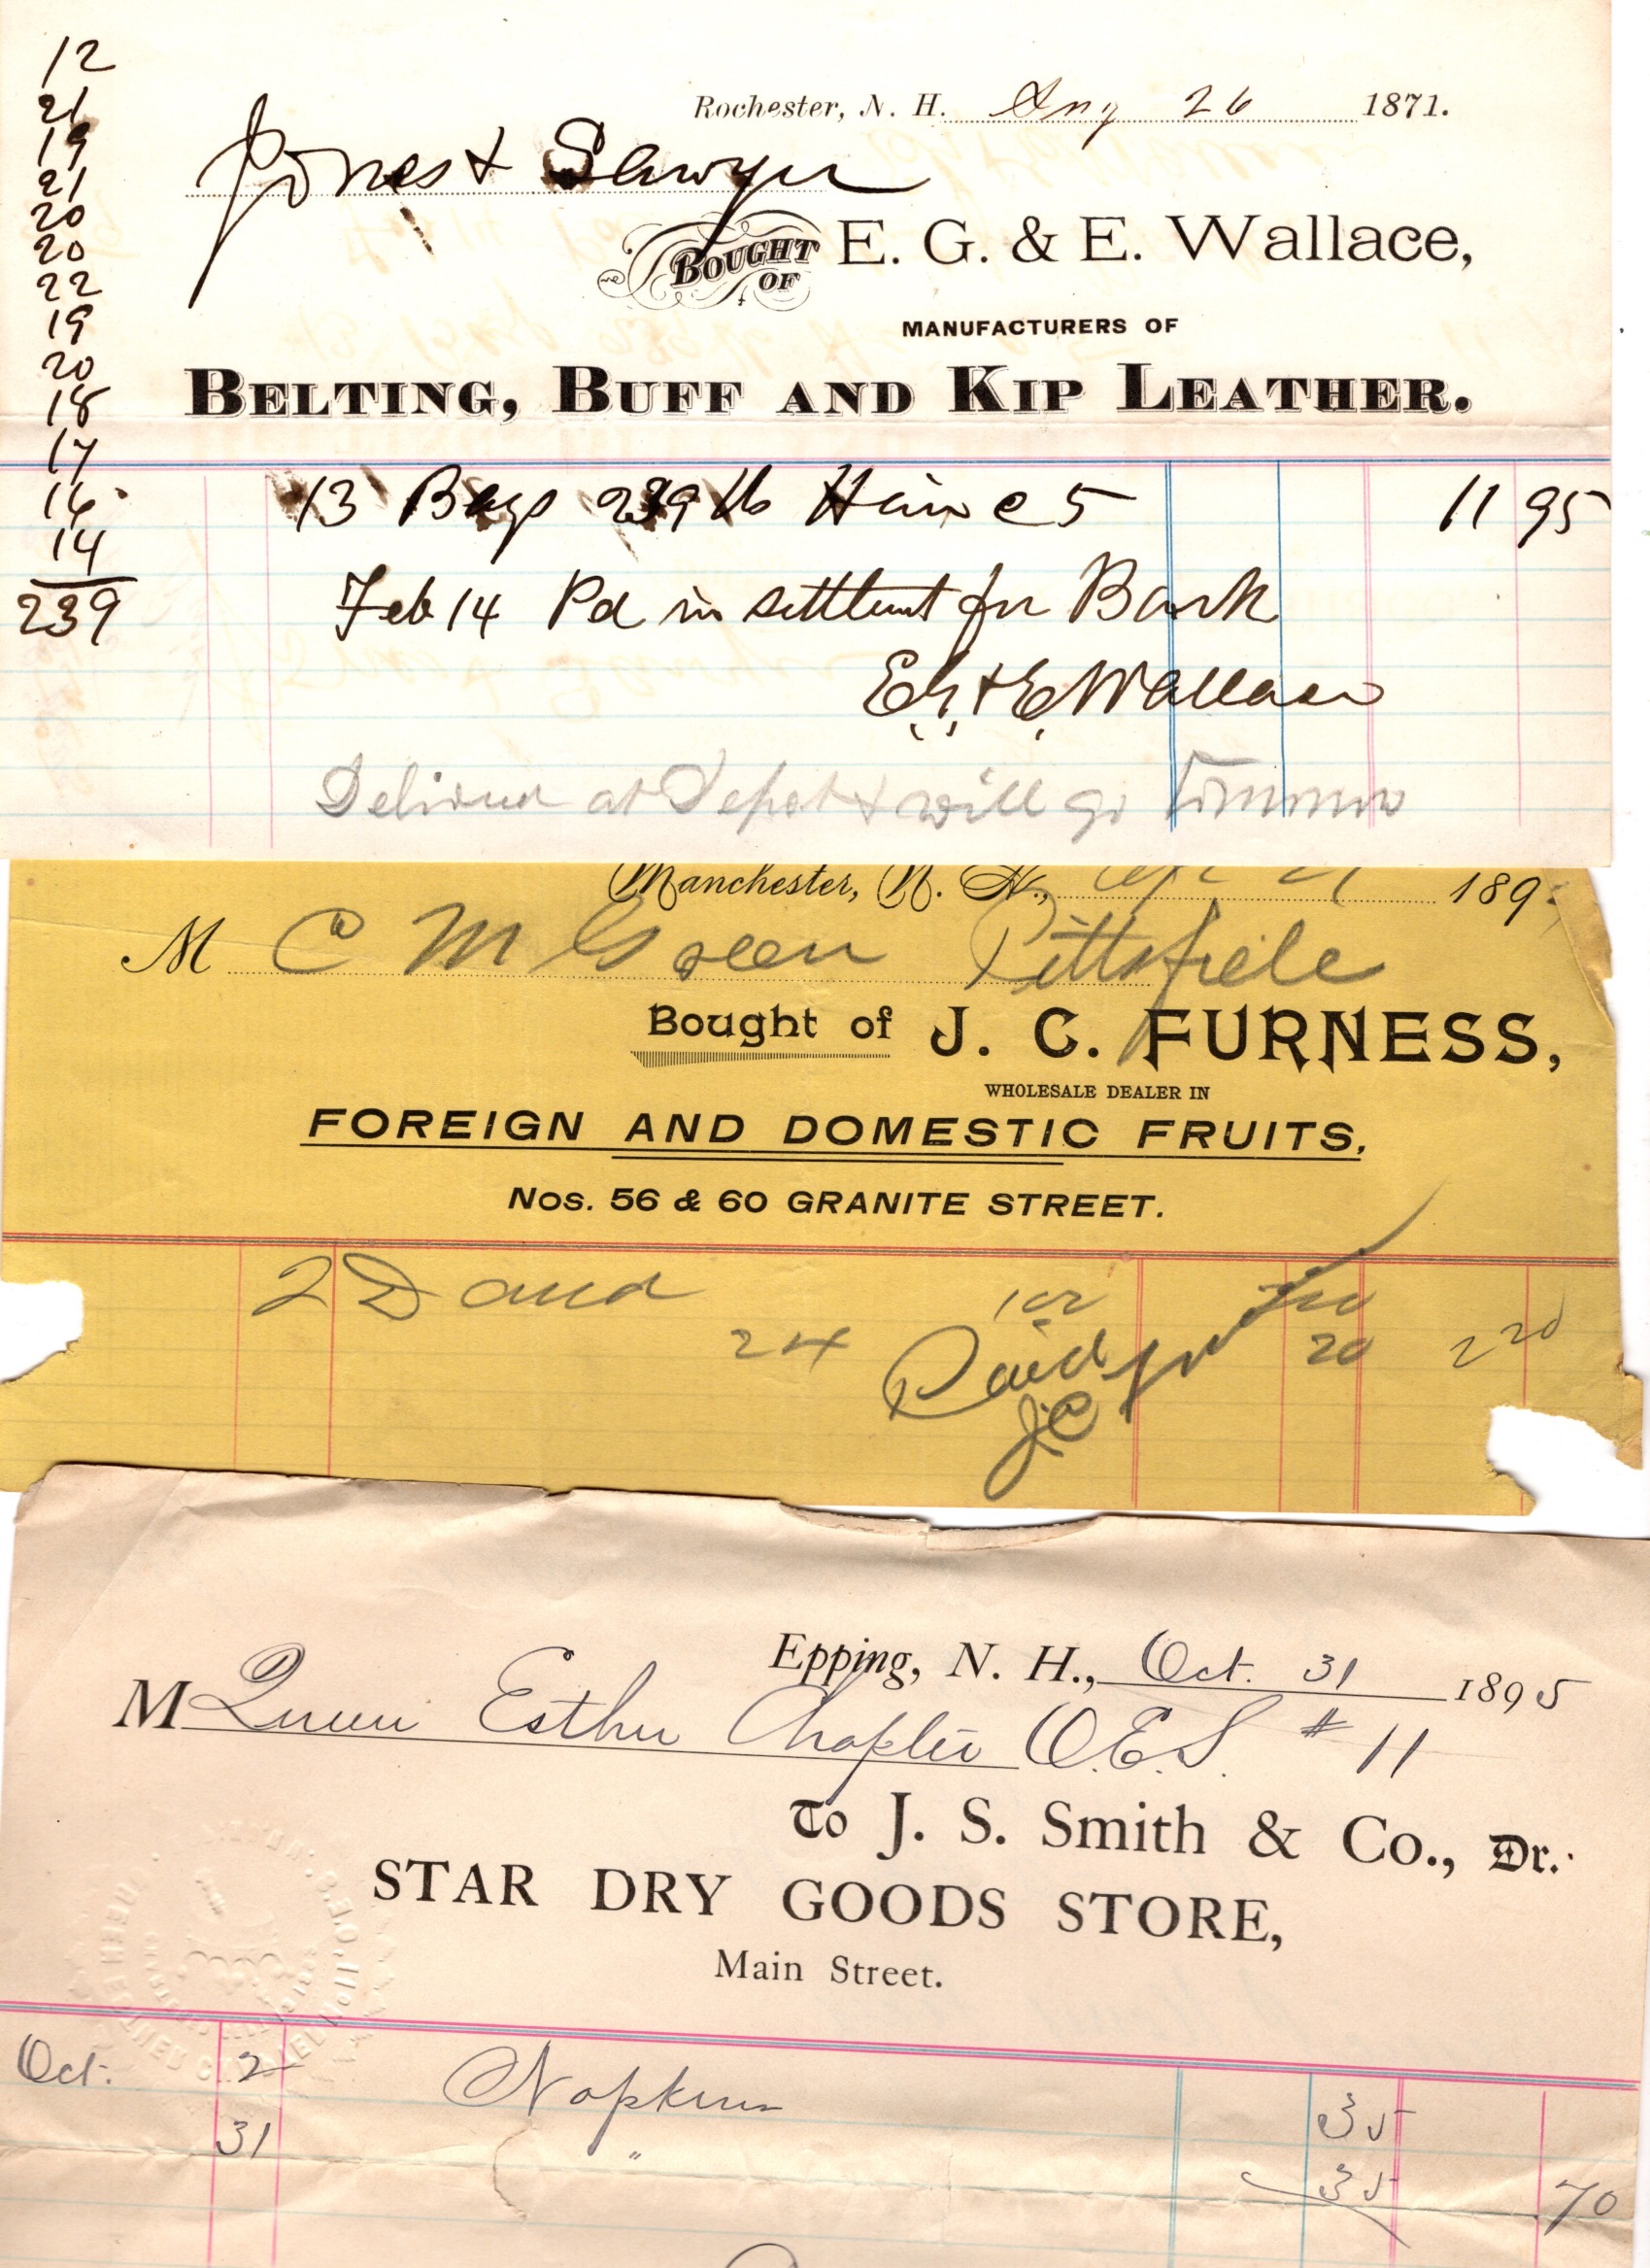 12
21
19
21
20
20
22
19
20
18
17
16
14
239
Rochester, N. H. Aug 26 1871.
Jones & Sawyer
BOUGHT OF E. G. & E. Wallace,
MANUFACTURERS OF
BELTING, BUFF AND KIP LEATHER.
13 Bags 239 lb Hair @ 5 11 95
Feb 14 Pd in settlemt for Bark
E.G. & E. Wallace
Deliverd at Depot & will go tomorrow
Manchester, N. H., 189
M C M Green Pittsfield
Bought of J. C. FURNESS,
WHOLESALE DEALER IN
FOREIGN AND DOMESTIC FRUITS,
Nos. 56 & 60 GRANITE STREET.
2
24 Paid 20 2 20
JC
Epping, N. H., Oct. 31 1895
M Queen Esther Chapter O.E.S. # 11
To J. S. Smith & Co., Dr.
STAR DRY GOODS STORE,
Main Street.
Oct. 2 Napkins 35
31 " 35 70